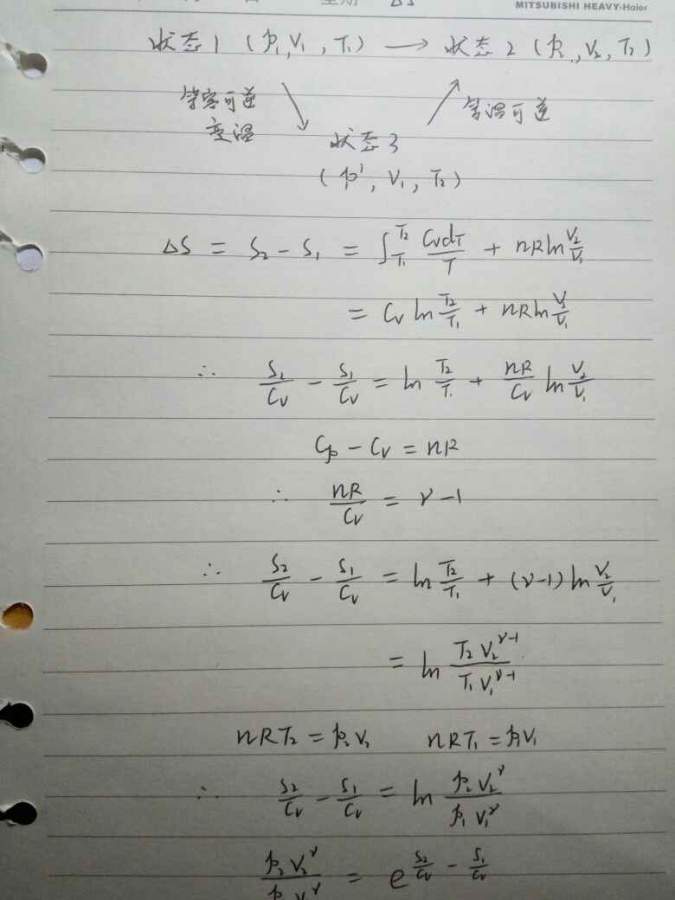 星期
MITSUBISHI HEAVY-Haier
状态1 (p₁, V₁, T₁) → 状态2 (p₂, V₂, T₂)
等容可逆 等温可逆
变温 状态3
(p', V₁, T₂)
ΔS = S₂ - S₁ = ∫_{T₁}^{T₂} CvdT/T + nRln V₂/V₁
= Cv ln T₂/T₁ + nRln V₂/V₁
∴ S₂/Cv - S₁/Cv = ln T₂/T₁ + nR/Cv ln V₂/V₁
Cp - Cv = nR
∴ nR/Cv = γ-1
∴ S₂/Cv - S₁/Cv = ln T₂/T₁ + (γ-1) ln V₂/V₁
= ln T₂V₂^{γ-1}/T₁V₁^{γ-1}
nRT₂ = p₂V₂ nRT₁ = p₁V₁
∴ S₂/Cv - S₁/Cv = ln p₂V₂^γ/p₁V₁^γ
p₂V₂^γ/p₁V₁^γ = e^{S₂/Cv - S₁/Cv}